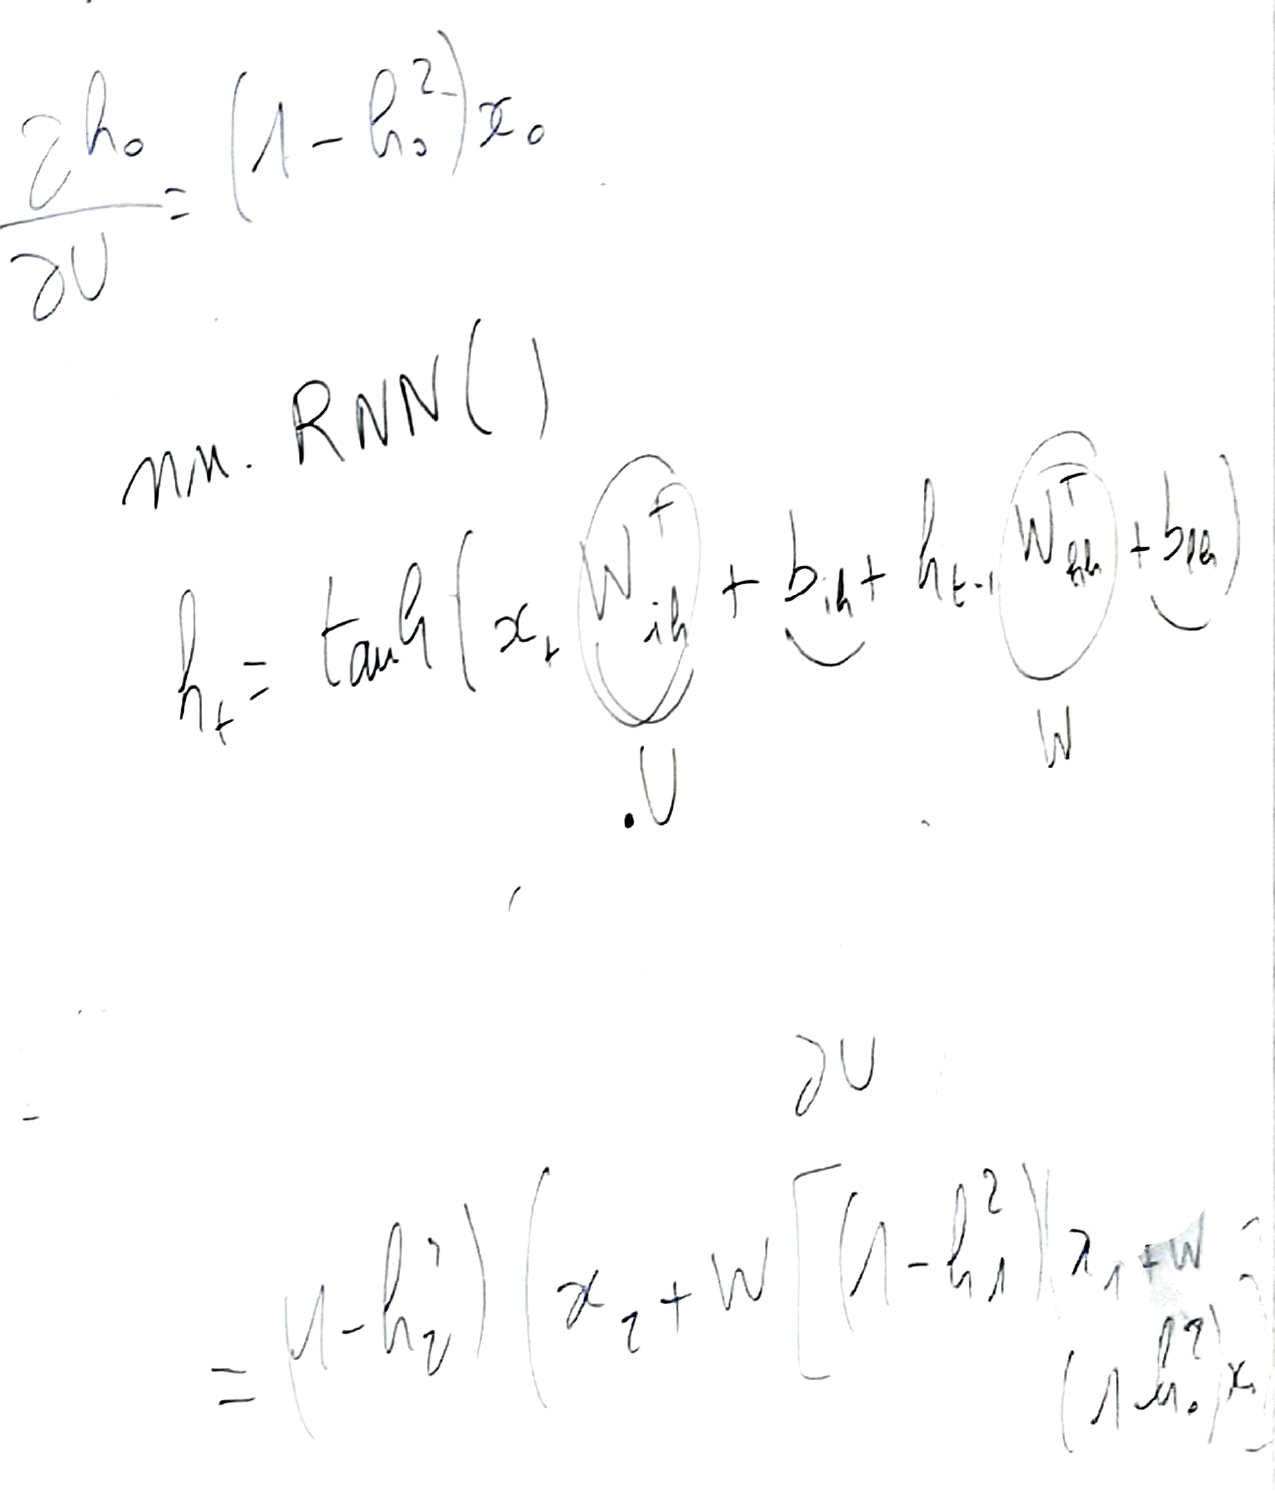 ∂h₀/∂U = (1 - h₀²) x₀
nn. RNN( )
hₜ = tanh( xₜ Wᵢₕᵀ + bᵢₕ + hₜ₋₁ Wₕₕᵀ + bₕₕ)
.U W
∂U
= (1 - h₂²) ( x₂ + W [ (1 - h₁²) x₁ + W
(1 h₀²) x₀ ]